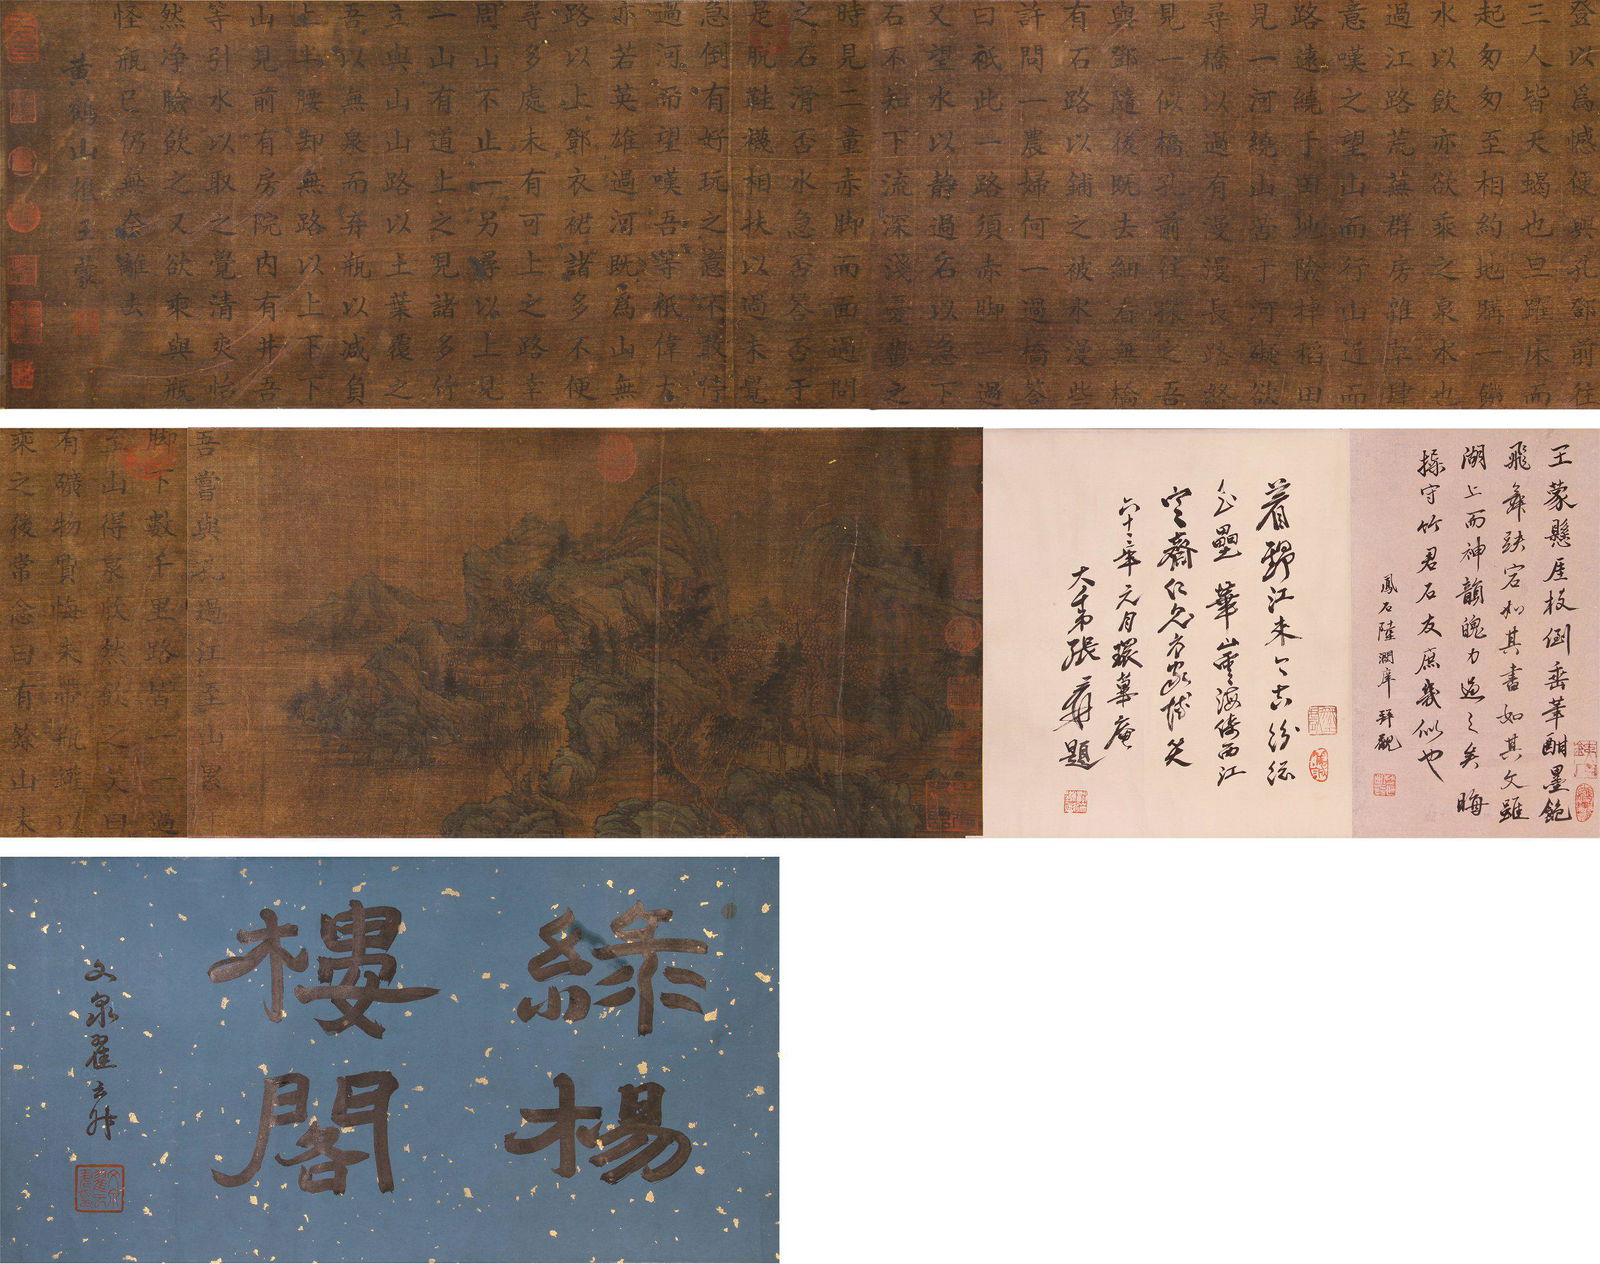 綠楊
樓閣
文泉翟云升
王蒙懸崖枝倒垂筆酣墨飽
飛舞跌宕如其書如其文雖
湖上而神韻魄力過之矣晦
操守竹君石友庶幾似也
鳳石陸潤庠拜觀
看野江來
六十三年元月環蓽庵
大千弟張爰題
吾嘗與孔過江至山累
脚下數千里路皆一一過
至山得泉收然飲之文曰
有礦物質悔未帶瓶罐以
乘之後常念曰有餘山未
登以爲憾便與孔鄧前往
三人皆天蝎也旦躍床而
起匆匆至相約地購一餓
水以飲亦欲乘之泉水也
過江路荒蕪群房雜草肆
意嘆之望山而行山近而
路遠繞于田地險掉稻田
見一河繞山苦于河礙欲
尋橋以過有漫漫長路終
見一似橋孔前往踩之吾
與鄧隨後既去細看無橋
有石路以鋪之被水漫些
許問一農婦何一過橋答
曰祇此一路須赤脚一過
又望水以静過石以急下
石不知下流深淺憂鬱之
時見二童赤脚而面過問
之石滑否水急否答否于
是脱鞋襪相扶以過未覺
急倒有好玩之意不敢恃
過河而望嘆吾等祇偉古
亦若英雄過河既爲山無
路以上鄧衣裙諸多不便
尋多處未有可上之路幸
周山不止一另尋以上見
一山有道上之見諸多竹
立與山山路以土葉覆之
吾以無泉而弃瓶以减負
上半腰卸無路以上下下
山見前有房院内有井吾
等引水以取之覺清爽怡
然净臉飲之又欲乘與瓶
怪瓶已仍無奈離去
黄鶴山樵王蒙